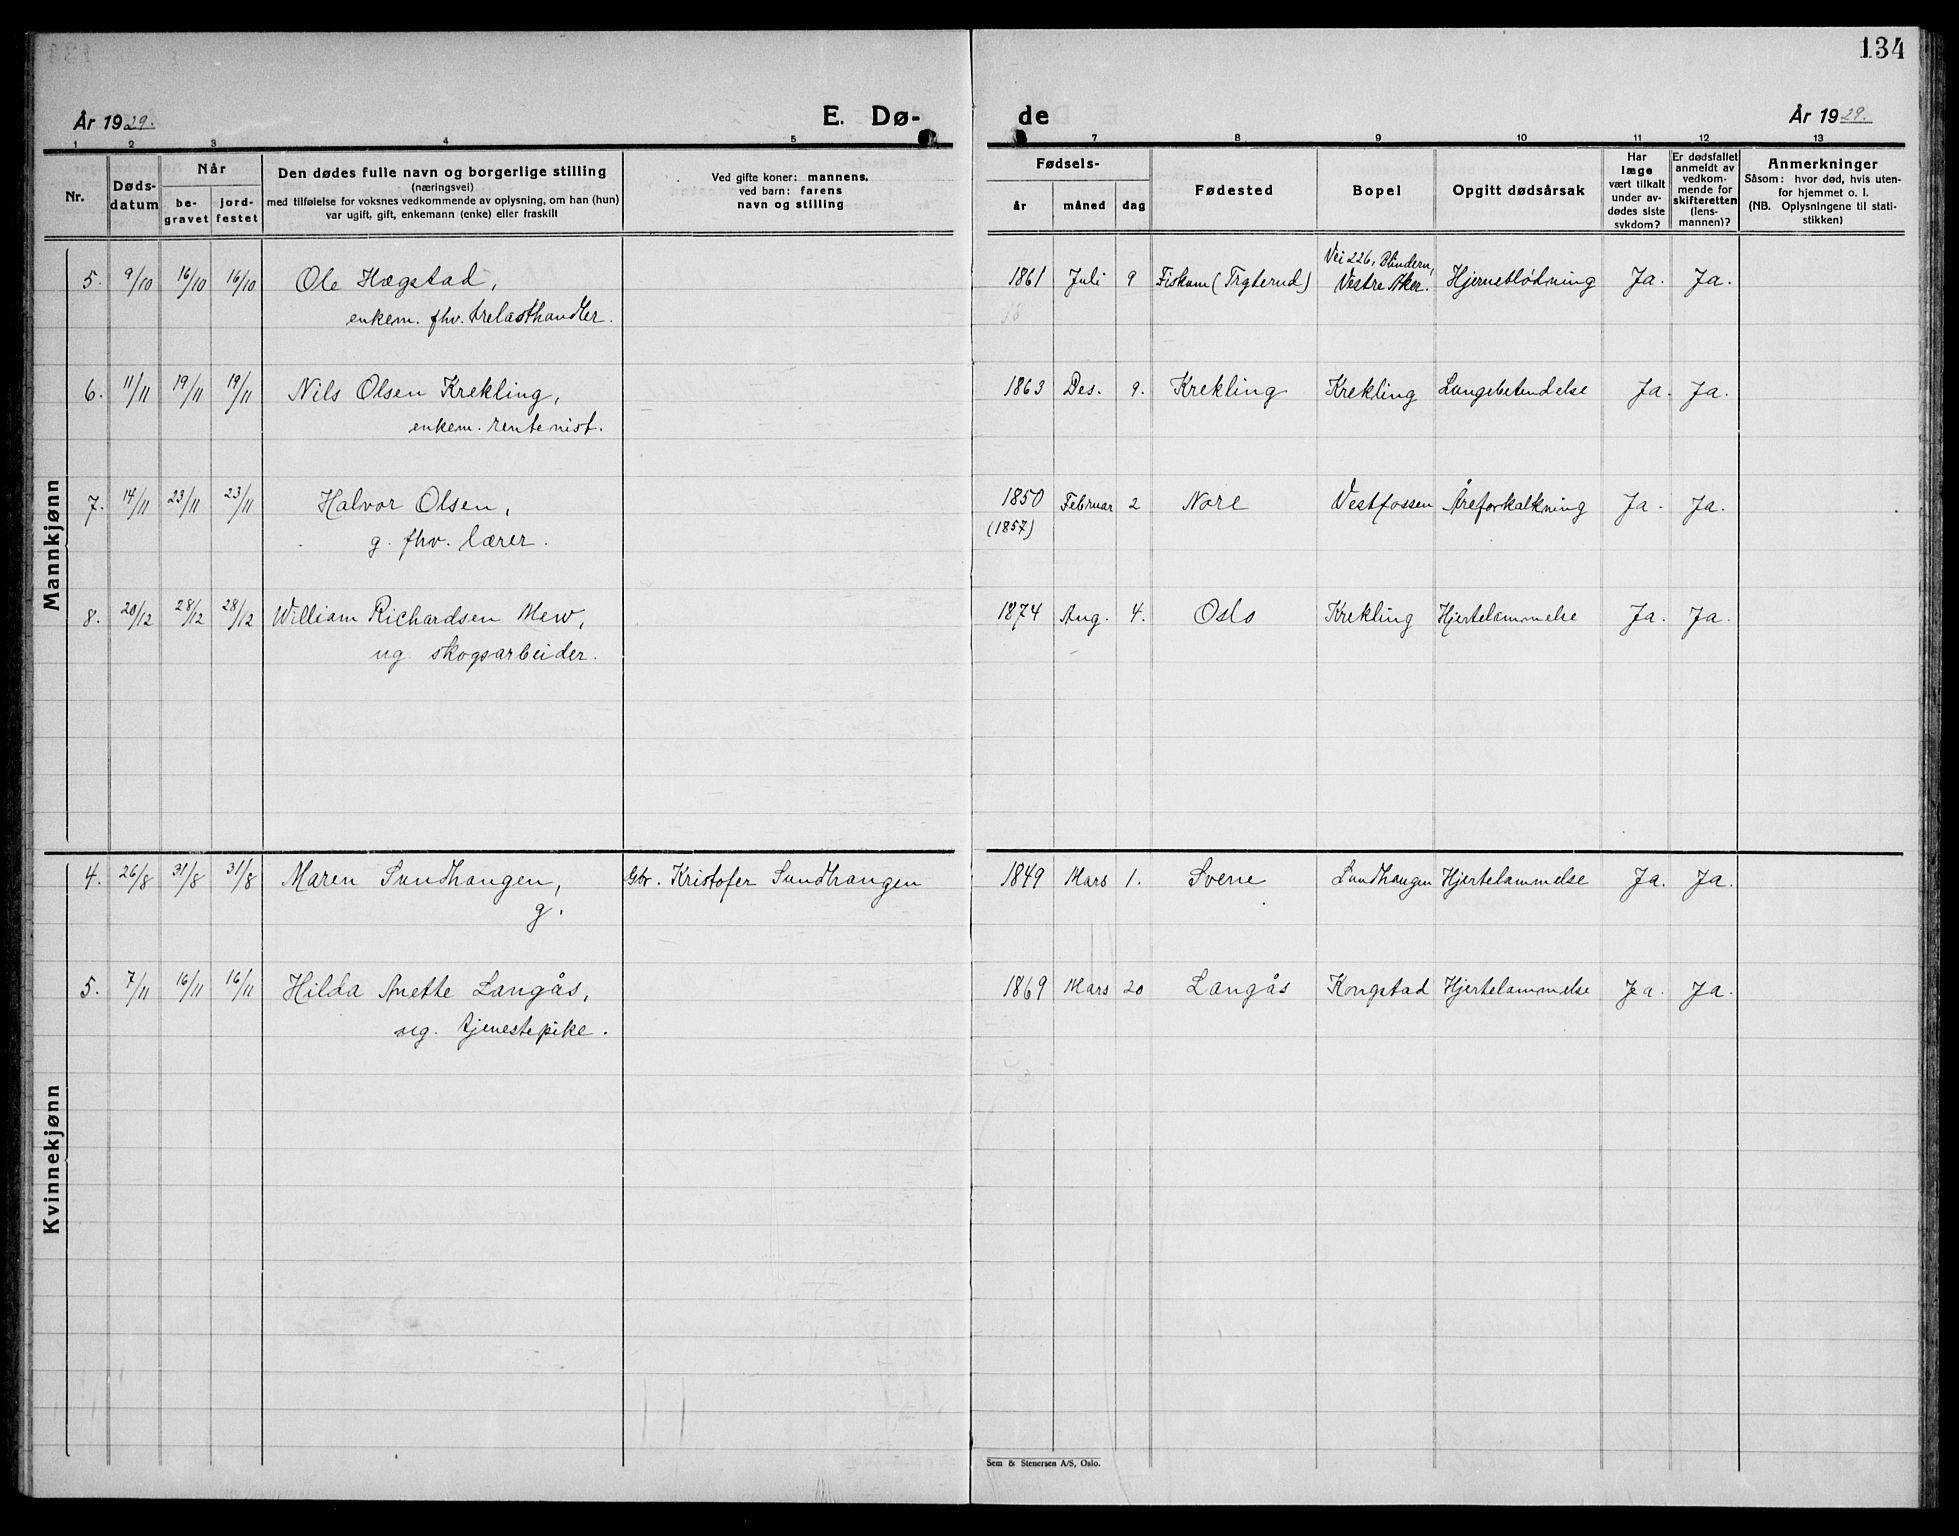 134
År 1929.
E. Dø-
de
År 1929.
1 2 3 4 5 7 8 9 10 11 12 13
Nr.
Døds-
datum
Når
be-
gravet
jord-
festet
Den dødes fulle navn og borgerlige stilling
(næringsvei)
med tilføielse for voksnes vedkommende av oplysning, om han (hun)
var ugift, gift, enkemann (enke) eller fraskilt
Ved gifte koner: mannens,
ved barn: farens
navn og stilling
Fødsels-
år måned dag
Fødested
Bopel
Opgitt dødsårsak
Har
læge
vært tilkalt
under av-
dødes siste
sykdom?
Er dødsfallet
anmeldt av
vedkom-
mende for
skifteretten
(lens-
mannen)?
Anmerkninger
Såsom: hvor død, hvis uten-
for hjemmet o. l.
(NB. Oplysningene til stati-
stikken)
Mannkjønn
Vei 226, Blindern,
5. 9/10 16/10 16/10 Ole Hægstad, 1861 Juli 9 Fiskum (Trgterud) Vestre Aker. Hjerneblødning Ja. Ja.
enkem. fhv. trelasthandler.
6. 11/11 19/11 19/11 Nils Olsen Krekling, 1863 Des. 9. Krekling Krekling Lungebetendelse Ja. Ja.
enkem. rentenist.
7. 14/11 23/11 23/11 Halvor Olsen, 1850 Februar 2 Nore Vestfossen Åreforkalkning Ja. Ja.
(1857)
g. fhv. lærer.
8. 20/12 28/12 28/12 William Richardsen Mew, 1874 Aug. 4. Oslo Krekling Hjertelammelse Ja. Ja.
ug. skogsarbeider.
Kvinnekjønn
4. 26/8 31/8 31/8 Maren Sundhaugen, Gbr. Kristofer Sundhaugen 1849 Mars 1. Svene Sundhaugen Hjertelammelse Ja. Ja.
g.
5. 7/11 16/11 16/11 Hilda Anette Langås, 1869 Mars 20 Langås Kongstad Hjertelammelse Ja. Ja.
ug. tjenestepike.
Sem & Stenersen A/S, Oslo.